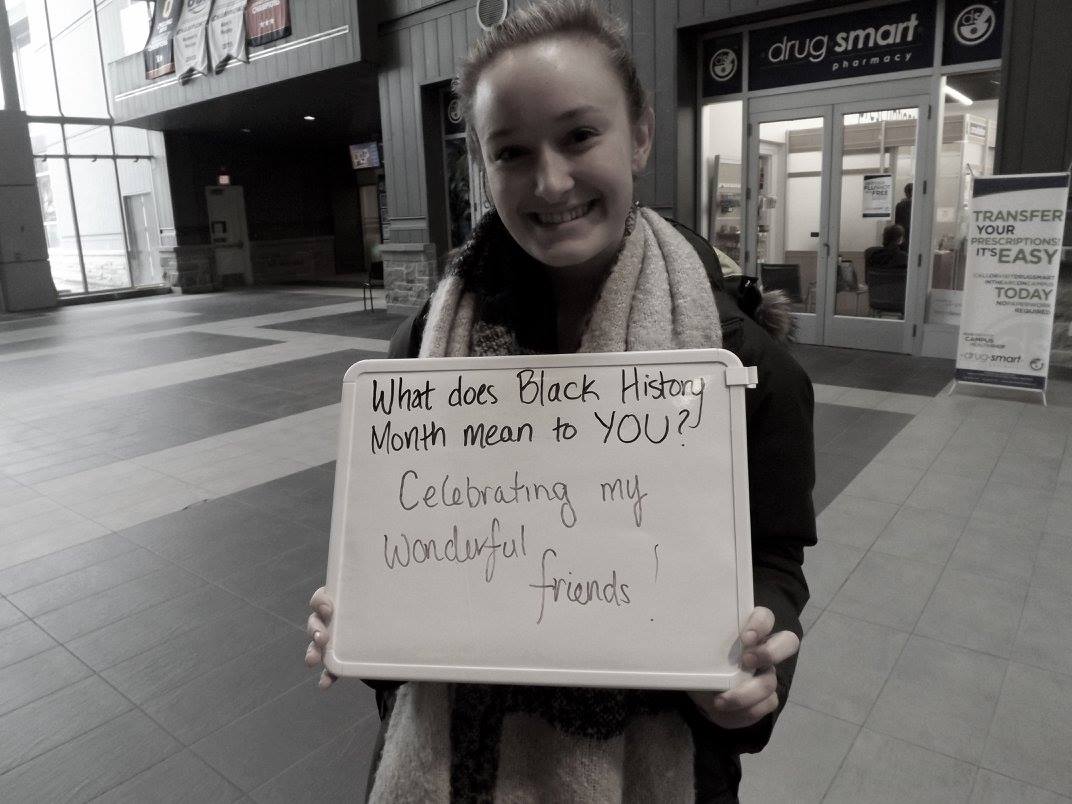 drug smart
pharmacy
What does Black History
Month mean to YOU?
Celebrating my
wonderful
friends!
TRANSFER
YOUR
PRESCRIPTIONS!
IT'S EASY
TODAY
NO PAPERWORK
REQUIRED
CAMPUS
drug smart